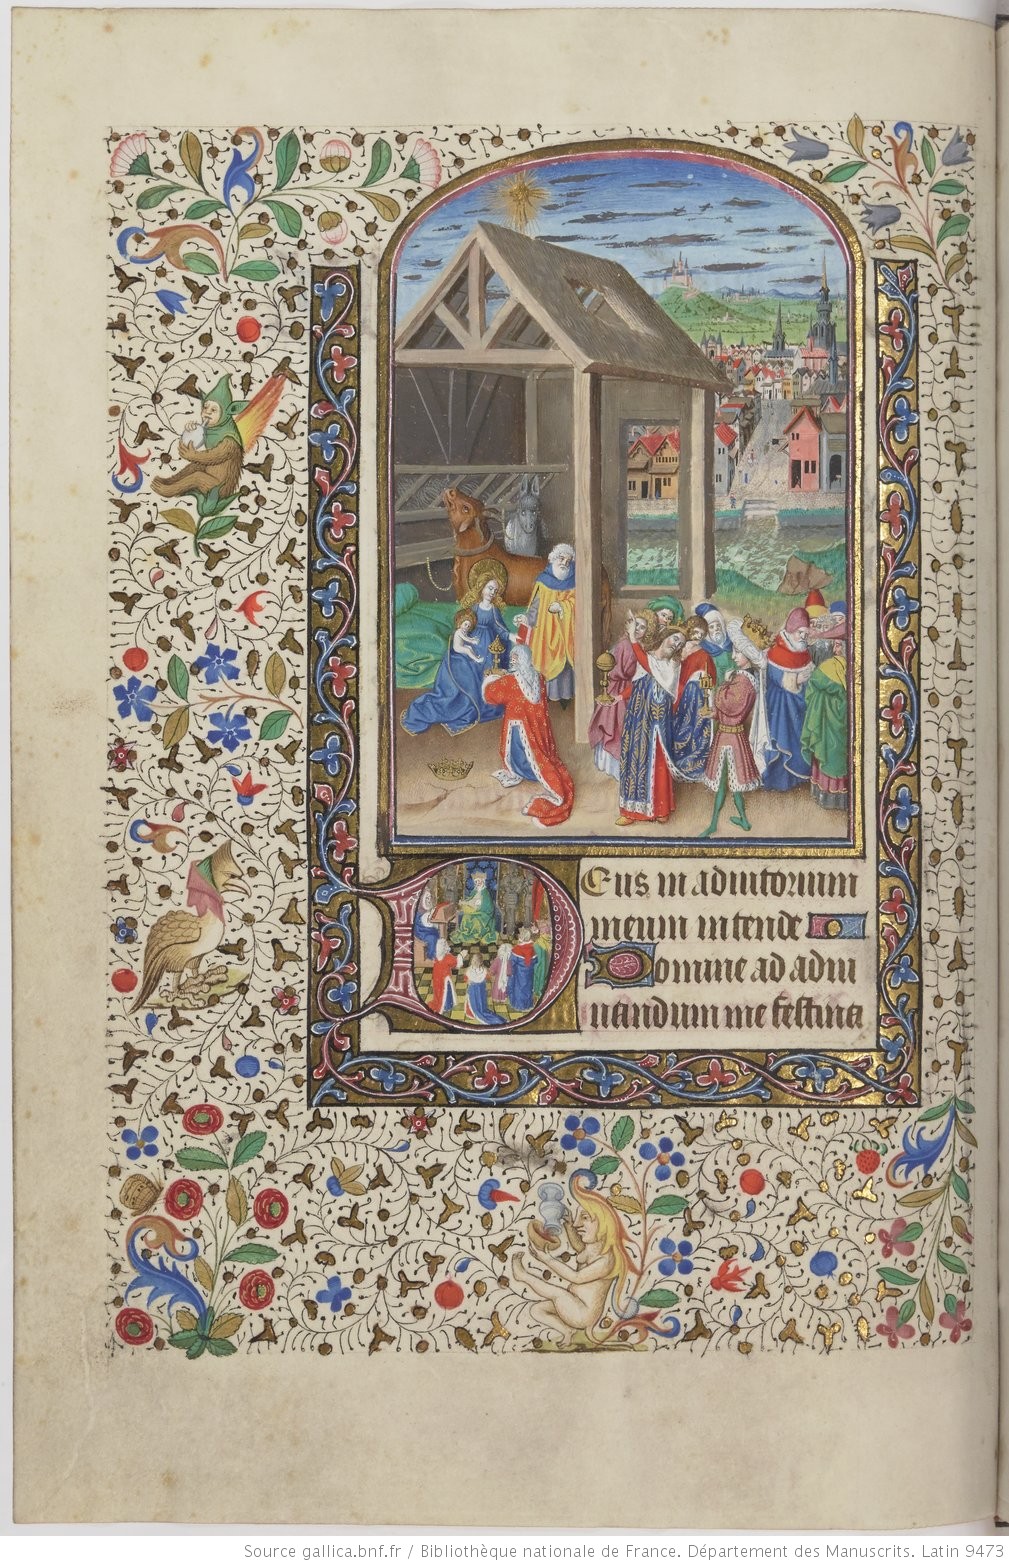 Deus in adiutorium
meum intende
Domine ad adiu
uandum me festina
Source gallica.bnf.fr / Bibliothèque nationale de France. Département des Manuscrits. Latin 9473